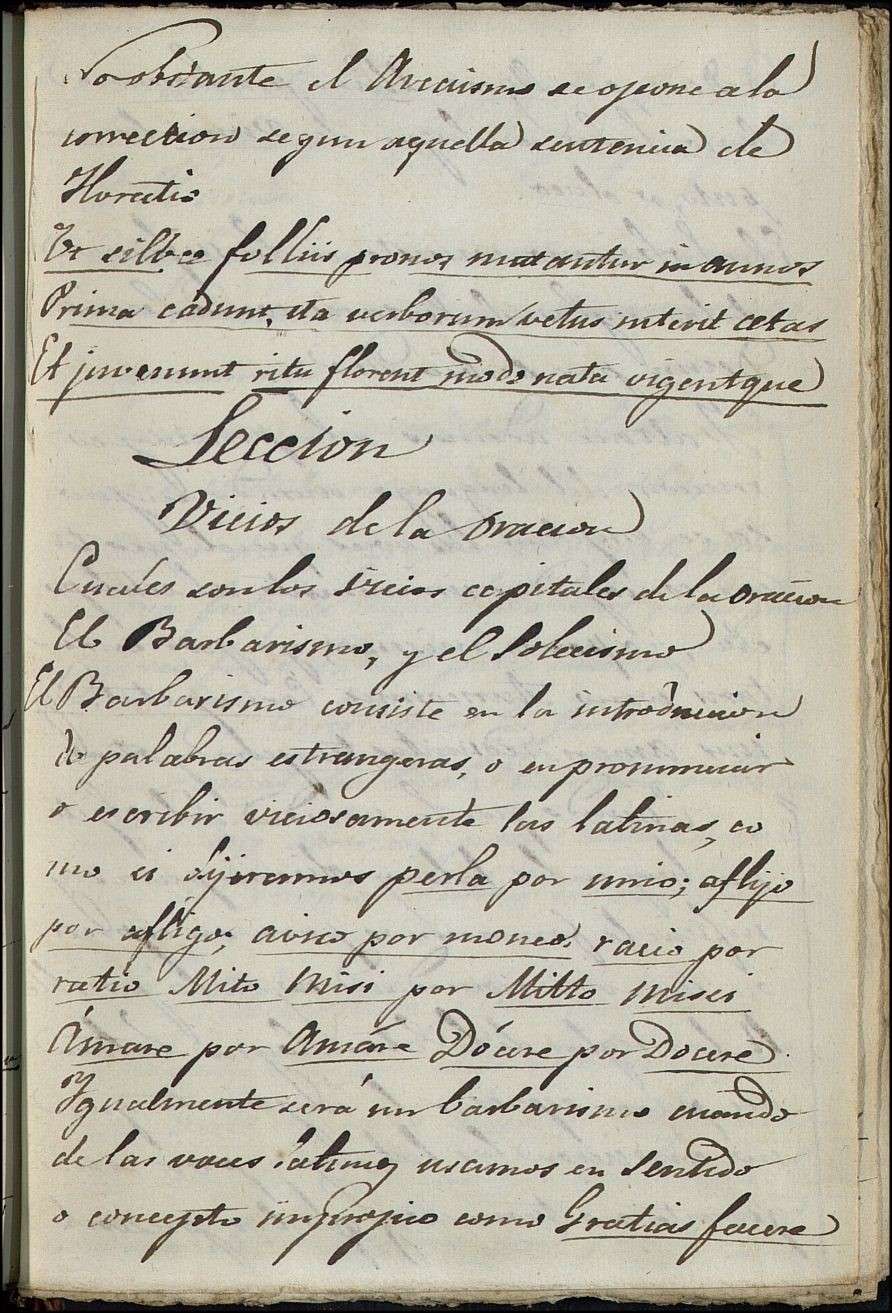 No obstante el Arcaismo se opone a la
correccion segun aquella sentencia de
Horatio
Ut silbae folliis pronos mutantur in annos
Prima cadunt, ita verborum vetus interit ætas
Et juvenunt ritu florent modo nata vigentque
Leccion
Vicios de la oracion
Cuales son los vicios capitales de la oracion
El Barbarismo, y el Solecismo
El Barbarismo consiste en la introduccion
de palabras estrangeras, o en pronunciar
o escribir viciosamente las latinas, co
mo si dijeremos perla por unio; aflijo
por afligo; aviso por moneo. racio por
ratio Mito Misi por Mitto Missi
Ámare por Amáre Dócere por Docere.
Ygualmente será un barbarismo cuando
de las voces latinas usamos en sentido
o concepto impropio como Gratias facere